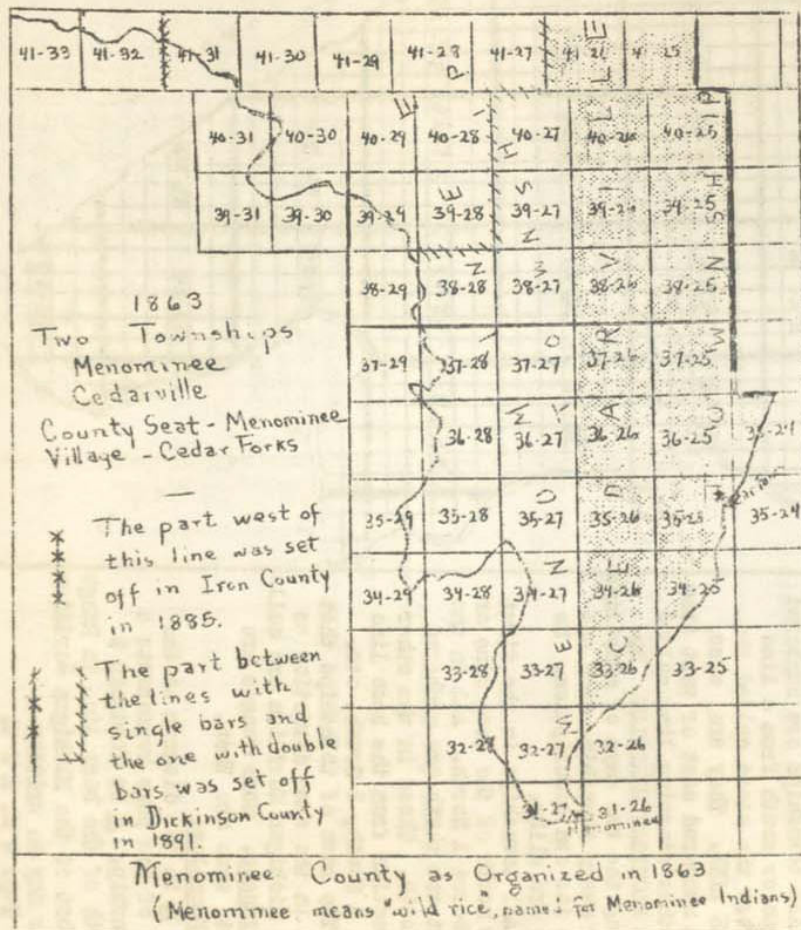 41-33 41-32 41-31 41-30 41-29 41-28 41-27 41-26 41-25
40-31 40-30 40-29 40-28 40-27 40-26 40-25
39-31 39-30 39-29 39-28 39-27 39-26 39-25
38-29 38-28 38-27 38-26 38-25
37-29 37-28 37-27 37-26 37-25
36-28 36-27 36-26 36-25
35-29 35-28 35-27 35-26 35-25 35-24
34-29 34-28 34-27 34-26 34-25
33-28 33-27 33-26 33-25
32-28 32-27 32-26
31-27 31-26
Menominee
MENOMINEE TOWNSHIP
CEDARVILLE
TOWNSHIP
1863
Two Townships
Menominee
Cedarville
County Seat - Menominee
Village - Cedar Forks
The part west of
this line was set
off in Iron County
in 1885.
The part between
the lines with
single bars and
the one with double
bars was set off
in Dickinson County
in 1891.
Menominee County as Organized in 1863
(Menominee means "wild rice", named for Menominee Indians)